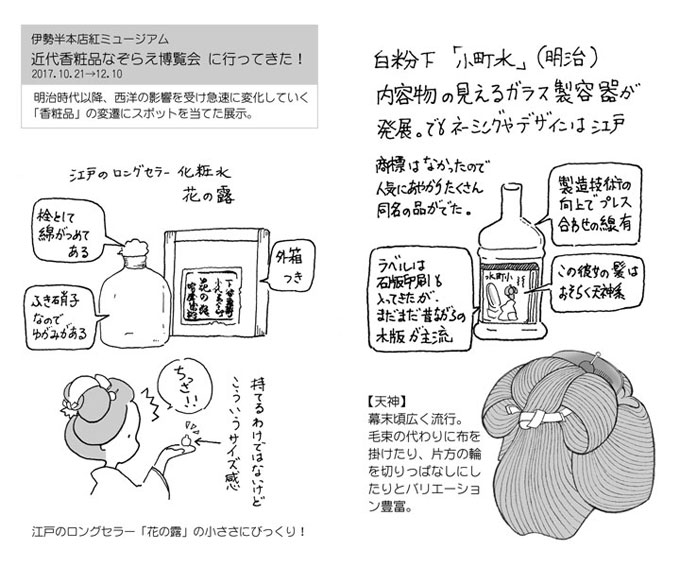 伊勢半本店紅ミュージアム
近代香粧品なぞらえ博覧会 に行ってきた！
2017.10.21→12.10
明治時代以降、西洋の影響を受け急速に変化していく
「香粧品」の変遷にスポットを当てた展示。
江戸のロングセラー 化粧水
花の露
栓として
綿がつめて
ある
ふき硝子
なので
ゆがみがある
外箱
つき
花の露
ちっさ!!
持てるわけではないけど
こういうサイズ感
江戸のロングセラー「花の露」の小ささにびっくり！
白粉下「小町水」(明治)
内容物の見えるガラス製容器が
発展。でもネーミングやデザインは江戸
商標はなかったので
人気にあやかりたくさん
同名の品がでた。
製造技術の
向上でプレス
合わせの線有
ラベルは
石版印刷も
入ってきたが、
まだまだ昔ながらの
木版が主流
水町小
この彼女の髪は
おそらく天神系
【天神】
幕末頃広く流行。
毛束の代わりに布を
掛けたり、片方の輪
を切りっぱなしにし
たりとバリエーショ
ン豊富。